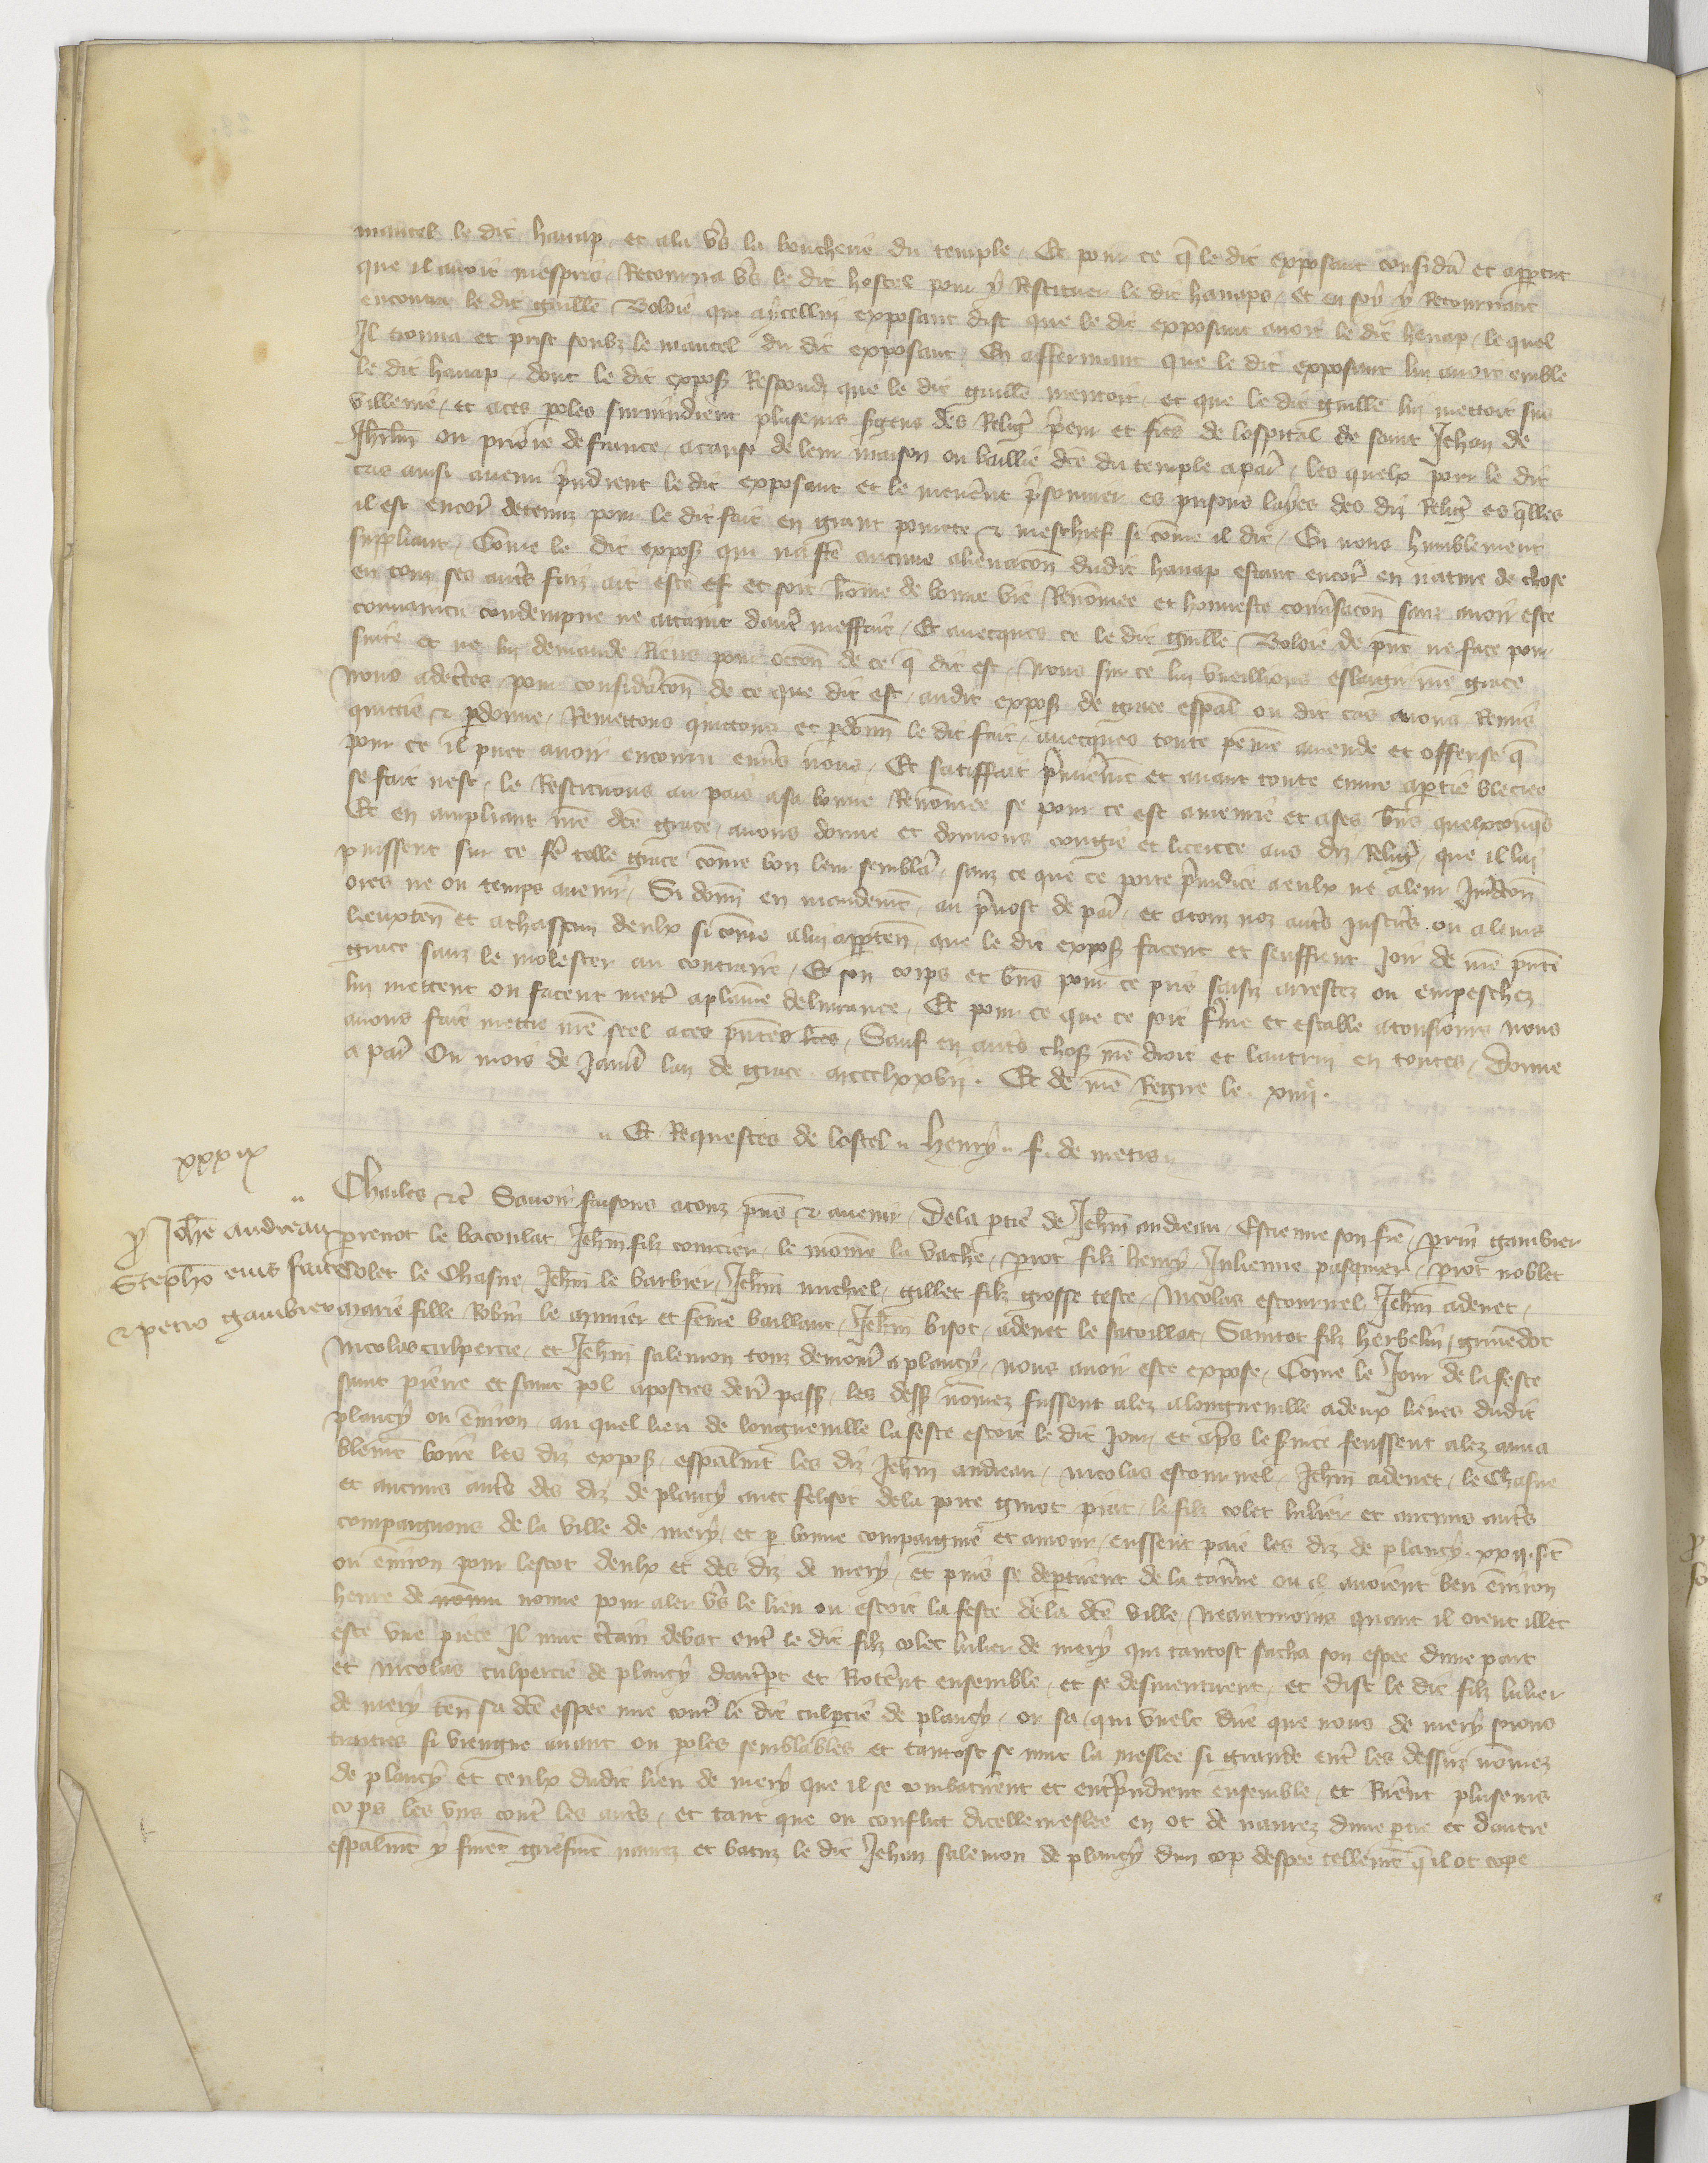 mantel le dit hanap et ala v̾s la boucherie du temple / Et pour ce q̄ le dit exposant considā et apperceut
que il avoit mespris / Retourna v̾s le dit hostel pour y Restituer le dit hanap / et en soy y Retournant
encontra le dit guill̄e Boloie qui a ycellui exposant dist que le dit exposant avoit le dit henap / le quel
Il trouva et prist soubz le mantel du dit exposant / En affermant que le dit exposant lui avoit emble
le dit hanap / dont le dit expos̄ Respondi que le dit guill̄e mentoit / et que le dit guill̄e lui mettoit sus
villenie / et a ces p̄oles survindrent pluseurs s̾gens des Relig̾ p̾eur et fr̄es de lospital de saint Jehan de
Jhrl̄m ou prioré de france / a cause de leur maison ou baillie dc̄e du temple a par̾ / les quelx pour le dit
cas ainsi avenu p̾ndrent le dit exposant et le men̾ent p̾sonnier es prisons layes des diz Relig̾ es q̄lles
il est encor̾ detenuz pour le dit fait en grant povrete & meschief si com̄e il dit / En nous humblement
suppliant / Com̄e le dit expos̄ qui na fc̄e aucune alienacōn dudit hanap estant encor̾ en nature de chose
en touz ses aut̾s faiz ait este et soit hom̄e de bonne vie / Renom̄ee et honneste conv̾sacōn sanz avoir este
convaincu condempne ne attaint daut̾ meffait / Et avecques ce le dit guill̄e Boloie de p̄nt ne face pour
suite et ne lui demande Riens pour occōn de ce q̄ dit est / Nous sur ce lui vueillions eslargir nr̄e grace
Nous adecertes pour consid̾acōn de ce que dit est / audit expos̄ de grace esp̄al ou dit cas avons Remis
quittie & pardonne / Remettons quittons et p̄donn̄ le dit fait / avecques toute peine amende et offense q̄
pour ce il puet avoir encouru env̾s nous / Et satisffait p̾mier̄mt et avant toute euvre a partie bleciee
se fait nest / le Restituons au pais a sa bonne Renom̄ee se pour ce est amenrie et a ses biens quelxconq̄s
Et en ampliant nr̄e dc̄e grace / avons donne et donnons congie et licence aus diz Relig̾ / que il lui
puissent sur ce fē telle grace com̄e bon leur sembl̾a / sanz ce que ce porte p̾iudice a eulx ne a leur Jur̾dicōn
ores ne ou temps avenir / Si donn̄ en mandem̄t / au p̾vost de par̾ / et a touz noz aut̾s justic̾s ou a leurs
lieuxten̄ et a chascun deulx si com̄e a lui appartend̾ / que le dit expos̄ facent et seuffrent Joir de nr̄e p̄nte
grace sanz le molester au contraire / Et son corps et b̄ns pour ce pris saisiz arrestez ou empeschez
lui mettent ou facent mett̾ a plaine delivrance / Et pour ce que ce soit ferme et estable a tousiours nous
avons fait mettre nr̄e seel a ces p̄ntes lr̄es / Sauf en aut̾s chos̄ nr̄e droit et lautrui en toutes / Donne
a par̾ Ou mois de Janv̾ lan de grace mccclxxvij. Et de nr̄e Regne le xiiijͤ.
Es Requestes de lostel Henry f. de metis
xxxix
Charles &c̄ Savoir faisons a touz p̄ns & avenir / De la p̄tie de Jeh̄n andreau / Estienne son fr̄e / perrin gambier
p̾ Joh̄e andreau
Perrot le bacoulat Jeh̄n filz courcier / le moine la vache / perrot filz henry / Julienne pasquier / perrot noblet
Steph̄o eius fratre
Colet le Chasne Jeh̄n le barbier / Jeh̄n michiel / gillet filz grosse teste / Nicolas estournel Jeh̄n adenet /
& petro gambier
Marie fille Robin le munier et feme vaillant / Jeh̄n bisot / adenet le satoillat / Santot filz herbelin /
Nicolas culpercie / et Jeh̄n salemon touz demour̾ a plancy / nous avoir este expose / Com̄e le Jour de la feste
saint pierre et saint pol apostres der̾ pass̄ / les dess̄ nom̄ez fussent alez a longueville a deux lieues dudit
plancy ou environ / au quel lieu de longueville la feste estoit le dit Jour / et ap̾s le s̾vice feussent alez ama
blem̄t boire les diz expos̄ / esp̄alm̄t les diz Jeh̄n andreau / Nicolas estournel / Jeh̄n adenet / le Chasne
et aucuns aut̾s des diz de plancy avec felisot de la porte guiot piat / le filz colet lulier et aucuns aut̾s
compaignons de la ville de mery / et p̄ bonne compaignie et amour / eussent paie les diz de plancy . xxij . s. t̄
ou environ pour lescot deulx et des diz de mery / et puis se dep̄tirent de la tav̾ne ou il avoient beu environ
heure de nonne pour aler v̾s le lieu ou estoit la feste de la dc̄e ville / Neantmoins quant il orent illec
este une piece Il mut c̾tain debat entr̾ le dit filz colet lulier de mery qui tantost sacha son espee dune part
et Nicolas culpercie de plancy dautrep̄t et Riot̾ent ensemble / et se desmentirent / et dist le dit filz lulier
de mery ten̄ sa dc̄e espee nue contr̾ le dit culpercie de plancy / or sa / qui vuelt dire que nous de mery soions
traitres si viengne avant ou p̄oles semblables et tantost se mut la meslee si grande entr̾ les dessuz nom̄ez
de plancy et ceulx dudit lieu de mery que il se combatirent et entrep̾ndrent ensemble / et Ru̾ent pluseurs
cops les uns contr̾ les aut̾s / et tant que ou conflict dicelle meslee en ot de navrez dune p̄tie et dautre
esp̄alm̄t y furent griefm̄t navrez et batuz le dit Jehan salemon de plancy dun cop despee tellem̄t q̄ il ot cope